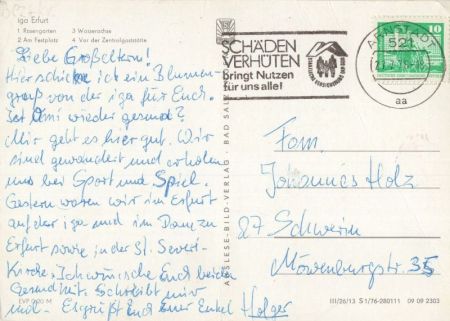 iga Erfurt
1 Rosengarten 3 Wasserachse
2 Am Festplatz 4 Vor der Zentralgaststätte
Liebe Großeltern!
Hier schicke ich ein Blumen-
gruß von der iga für Euch.
Ist Omi wieder gesund?
Mir geht es hier gut. Wir
sind gewandert und erholen
uns bei Sport und Spiel.
Gestern waren wir im Erfurt
auf der iga und im Dom zu
Erfurt sowie in der St. Severi-
Kirche. Ich wünsche Euch beiden
Gesundheit. Schreibt mir
mal. Es grüßt Euch Euer Enkel Holger
EVP 0,20 M
AUSLESE-BILD-VERLAG · BAD SALZUNGEN
SCHÄDEN
VERHÜTEN
bringt Nutzen
für uns alle!
ARNSTADT
521
aa
10
Fam.
Johannes Holz
27 Schwerin
Möwenburgstr. 35
III/26/13 S 1/76-280111 09 09 2303